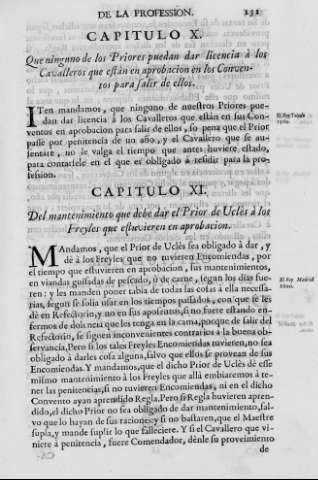 DE LA PROFESSION. 231
CAPITULO X.
Que ninguno de los Priores puedan dar licencia à los
Cavalleros que eſtàn en aprobacion en los Conven-
tos para ſalir de ellos.
ITen mandamos, que ninguno de nueſtros Priores pue-
dan dar licencia à los Cavalleros que eſtàn en sus Con-
ventos en aprobacion para ſalir de ellos, ſo pena que el Prior
paſſe por penitencia de un año, y al Cavallero que ſe au-
ſentare, no le valga el tiempo que antes huviere eſtado,
para contarſele en el que es obligado à reſidir para la pro-
feſsion.
El Rey
CAPITULO XI.
Del mantenimiento que debe dar el Prior de Uclès à los
Freyles que eſtuvieren en aprobacion.
MAndamos, que el Prior de Uclès ſea obligado à dar, y
dè à los Freyles que no tuvieren Encomiendas, por
el tiempo que eſtuvieren en aprobacion, ſus mantenimientos,
en viandas guiſadas de peſcado, ù de carne, ſegun los dias fue-
ren: y les manden poner tabla de todas las coſas à ella neceſſa-
rias, ſegun ſe ſolia uſar en los tiempos paſſados, con que ſe les
dè en Refectorio, y no en ſus apoſentos, ſi no fuere eſtando en-
fermos de dolencia que les tenga en la cama, porque de ſalir del
Refectorio, ſe ſiguen inconvenientes contrarios à la buena ob-
ſervancia. Pero ſi los tales Freyles Encomiendas tuvieren, no ſea
obligado à darles coſa alguna, ſalvo que ellos ſe provean de ſus
Encomiendas. Y mandamos, que el dicho Prior de Uclès dè eſſe
miſmo mantenimiento à los Freyles que allà embiaremos à te-
ner las penitencias, ſi no tuvieren Encomiendas, ni en el dicho
Convento ayan aprendido Regla. Pero ſi Regla huvieren apren-
dido, el dicho Prior no ſea obligado de dar mantenimiento, ſal-
vo que lo hayan de ſus raciones: y ſi no baſtaren, que el Maeſtre
ſupla, y mande ſuplir lo que falleciere. Y ſi el Cavallero que vi-
niere à penitencia, fuere Comendador, dènle ſu proveimiento
de
El Rey Madrid